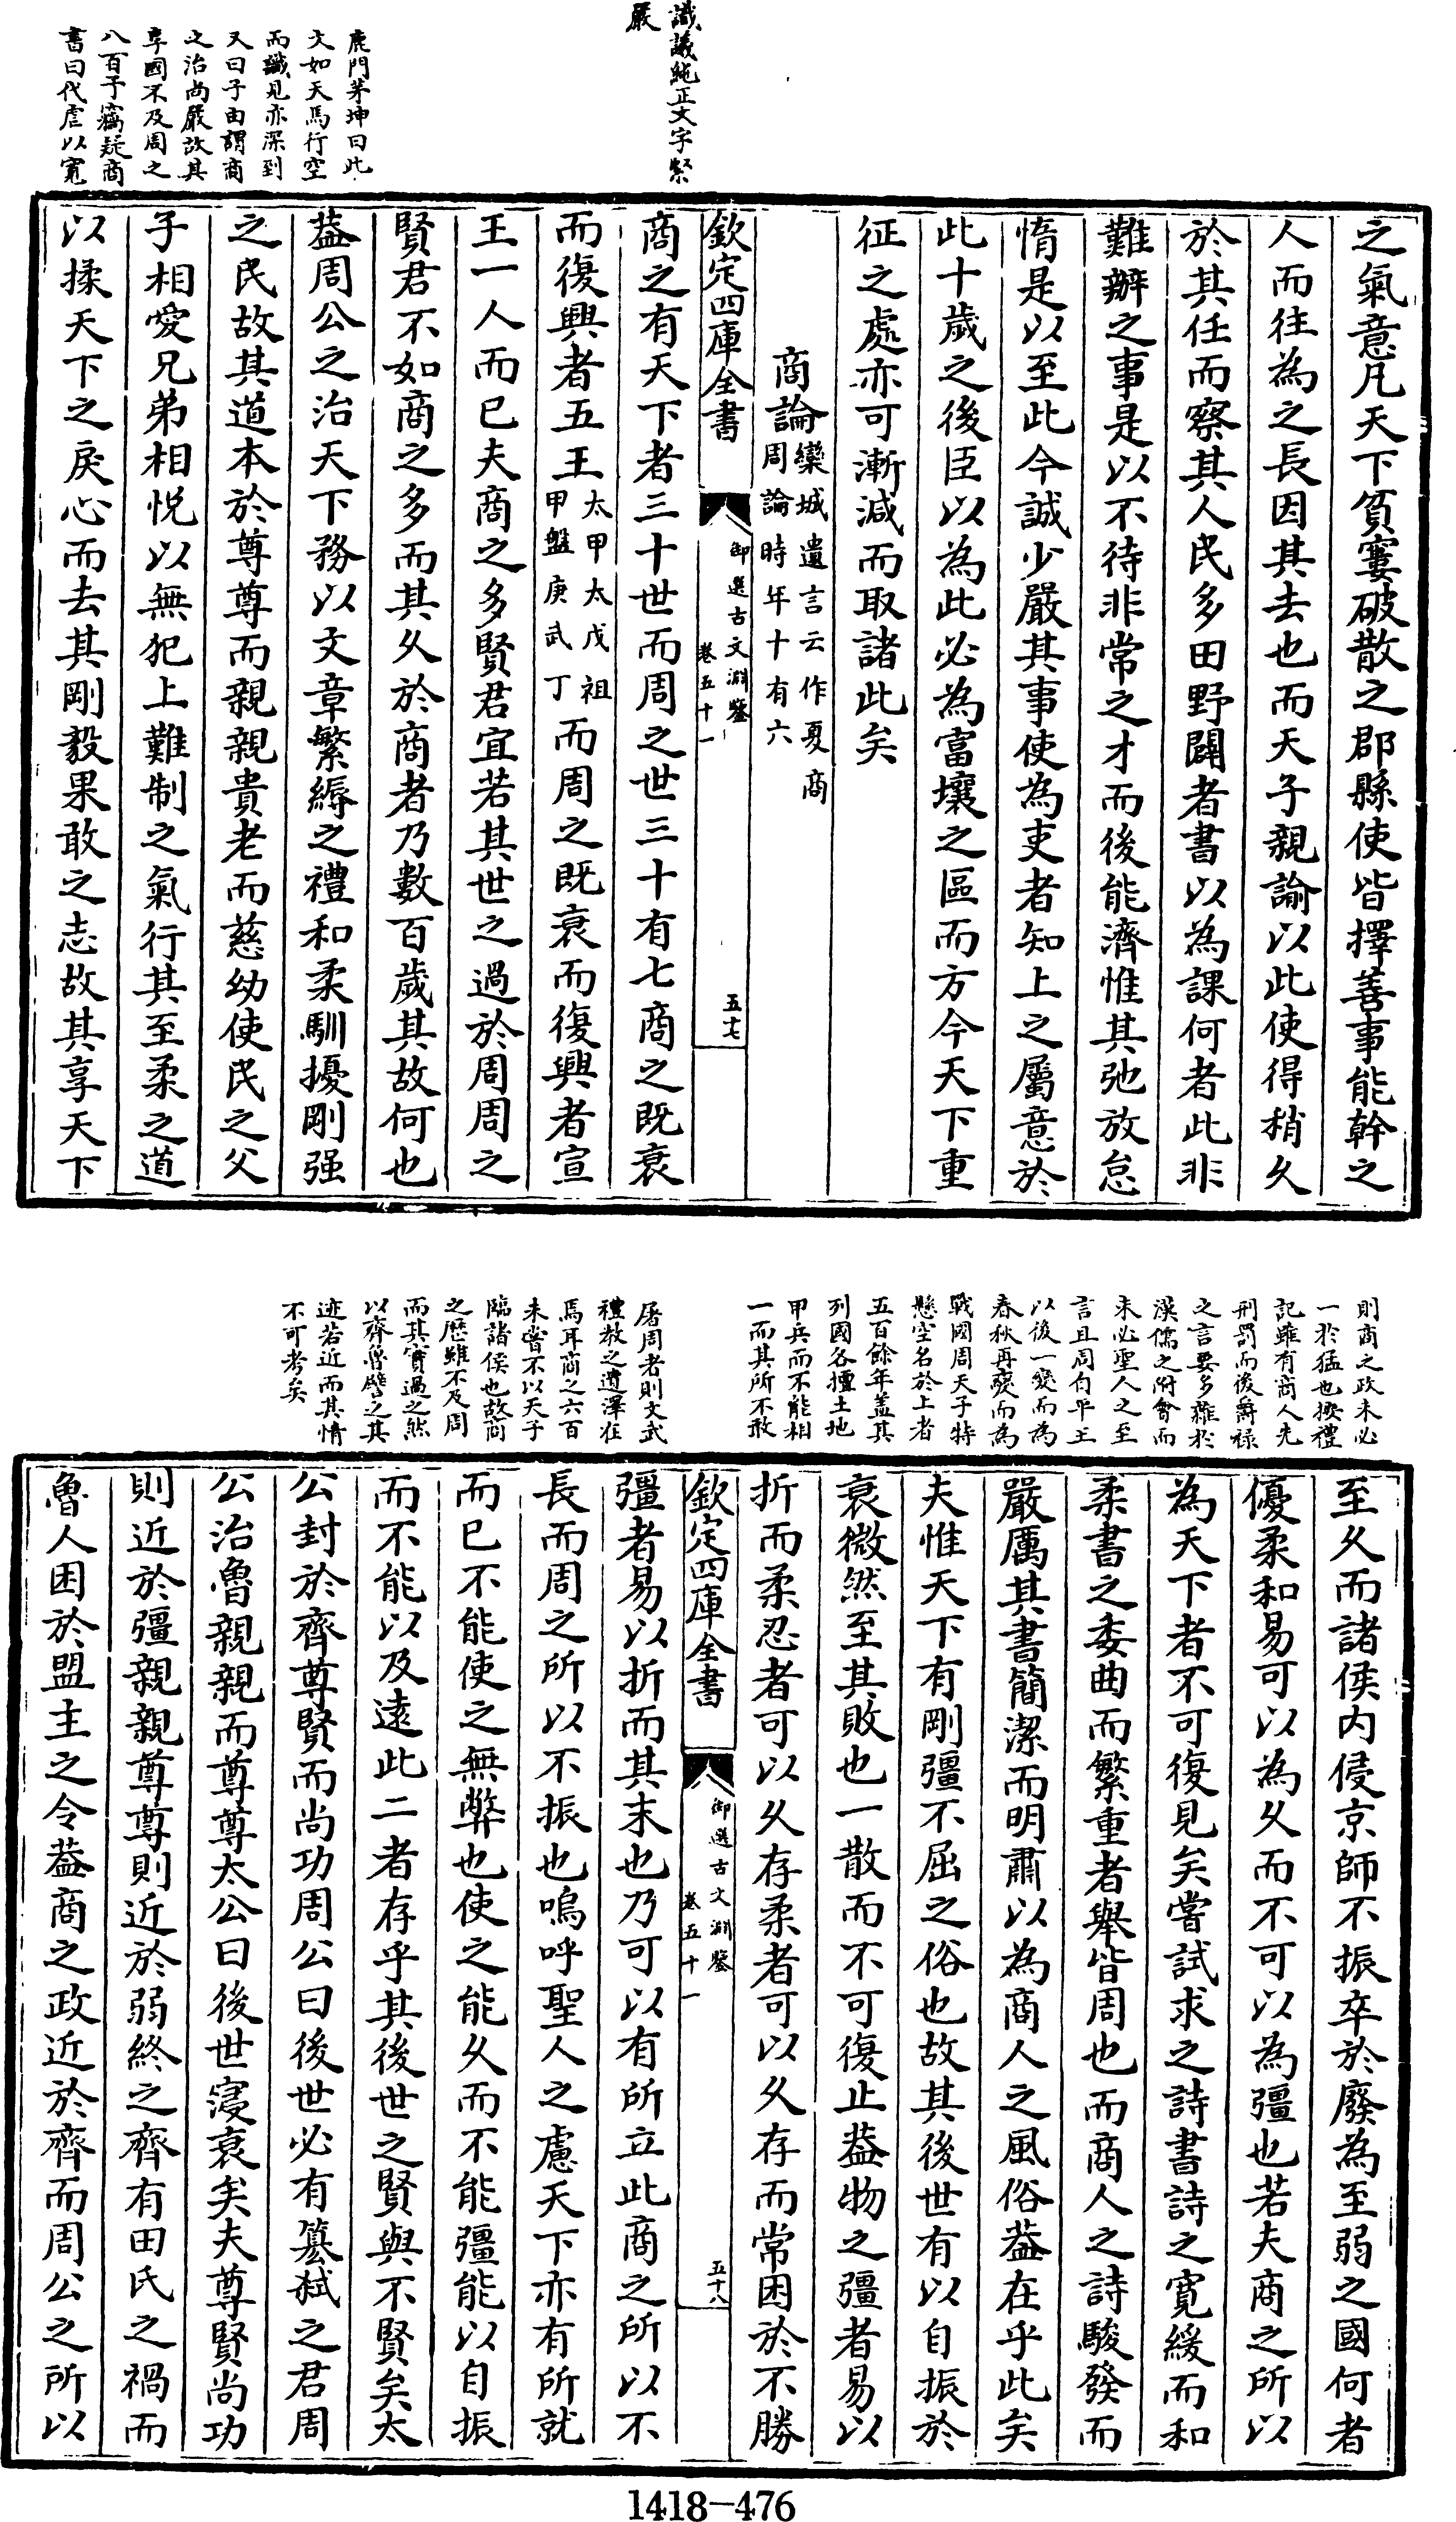 識議純正文字緊
嚴
鹿門茅坤曰此
文如天馬行空
而識見亦深到
又曰子由謂商
之治尚嚴故其
享國不及周之
八百予竊疑商
書曰代虐以寬
之氣意凡天下貧窶破散之郡縣使皆擇善事能幹之
人而往為之長因其去也而天子親諭以此使得稍久
於其任而察其人民多田野闢者書以為課何者此非
難辦之事是以不待非常之才而後能濟惟其弛放怠
惰是以至此今誠少嚴其事使為吏者知上之屬意於
此十歲之後臣以為此必為富壤之區而方今天下重
征之處亦可漸減而取諸此矣
商論欒城遺言云作夏商
周論時年十有六
欽定四庫全書
御選古文淵鑒
卷五十一
五十七
商之有天下者三十世而周之世三十有七商之既衰
而復興者五王太甲太戊祖
甲盤庚武丁而周之既衰而復興者宣
王一人而已夫商之多賢君宜若其世之過於周周之
賢君不如商之多而其久於商者乃數百歲其故何也
葢周公之治天下務以文章繁縟之禮和柔馴擾剛强
之民故其道本於尊尊而親親貴老而慈幼使民之父
子相愛兄弟相悅以無犯上難制之氣行其至柔之道
以揉天下之戾心而去其剛毅果敢之志故其享天下
則商之政未必
一於猛也按禮
記雖有商人先
刑罰而後爵祿
之言要多雜於
漢儒之附會而
未必聖人之至
言且周自平王
以後一變而為
春秋再變而為
戰國周天子特
懸空名於上者
五百餘年盖其
列國各擅土地
甲兵而不能相
一而其所不敢
屠周者則文武
禮教之遺澤在
焉耳商之六百
未嘗不以天子
臨諸侯也故商
之歷雖不及周
而其實過之然
以齊魯譬之其
迹若近而其情
不可考矣
至久而諸侯内侵京師不振卒於廢為至弱之國何者
優柔和易可以為久而不可以為彊也若夫商之所以
為天下者不可復見矣嘗試求之詩書詩之寬緩而和
柔書之委曲而繁重者舉皆周也而商人之詩駿發而
嚴厲其書簡潔而明肅以為商人之風俗葢在乎此矣
夫惟天下有剛彊不屈之俗也故其後世有以自振於
衰微然至其敗也一散而不可復止葢物之彊者易以
折而柔忍者可以久存柔者可以久存而常困於不勝
欽定四庫全書
御選古文淵鑒
卷五十一
五十八
彊者易以折而其末也乃可以有所立此商之所以不
長而周之所以不振也嗚呼聖人之慮天下亦有所就
而已不能使之無弊也使之能久而不能彊能以自振
而不能以及遠此二者存乎其後世之賢與不賢矣太
公封於齊尊賢而尚功周公曰後世必有篡弑之君周
公治魯親親而尊尊太公曰後世寖衰矣夫尊賢尚功
則近於彊親親尊尊則近於弱終之齊有田氏之禍而
魯人困於盟主之令葢商之政近於齊而周公之所以
1418-476